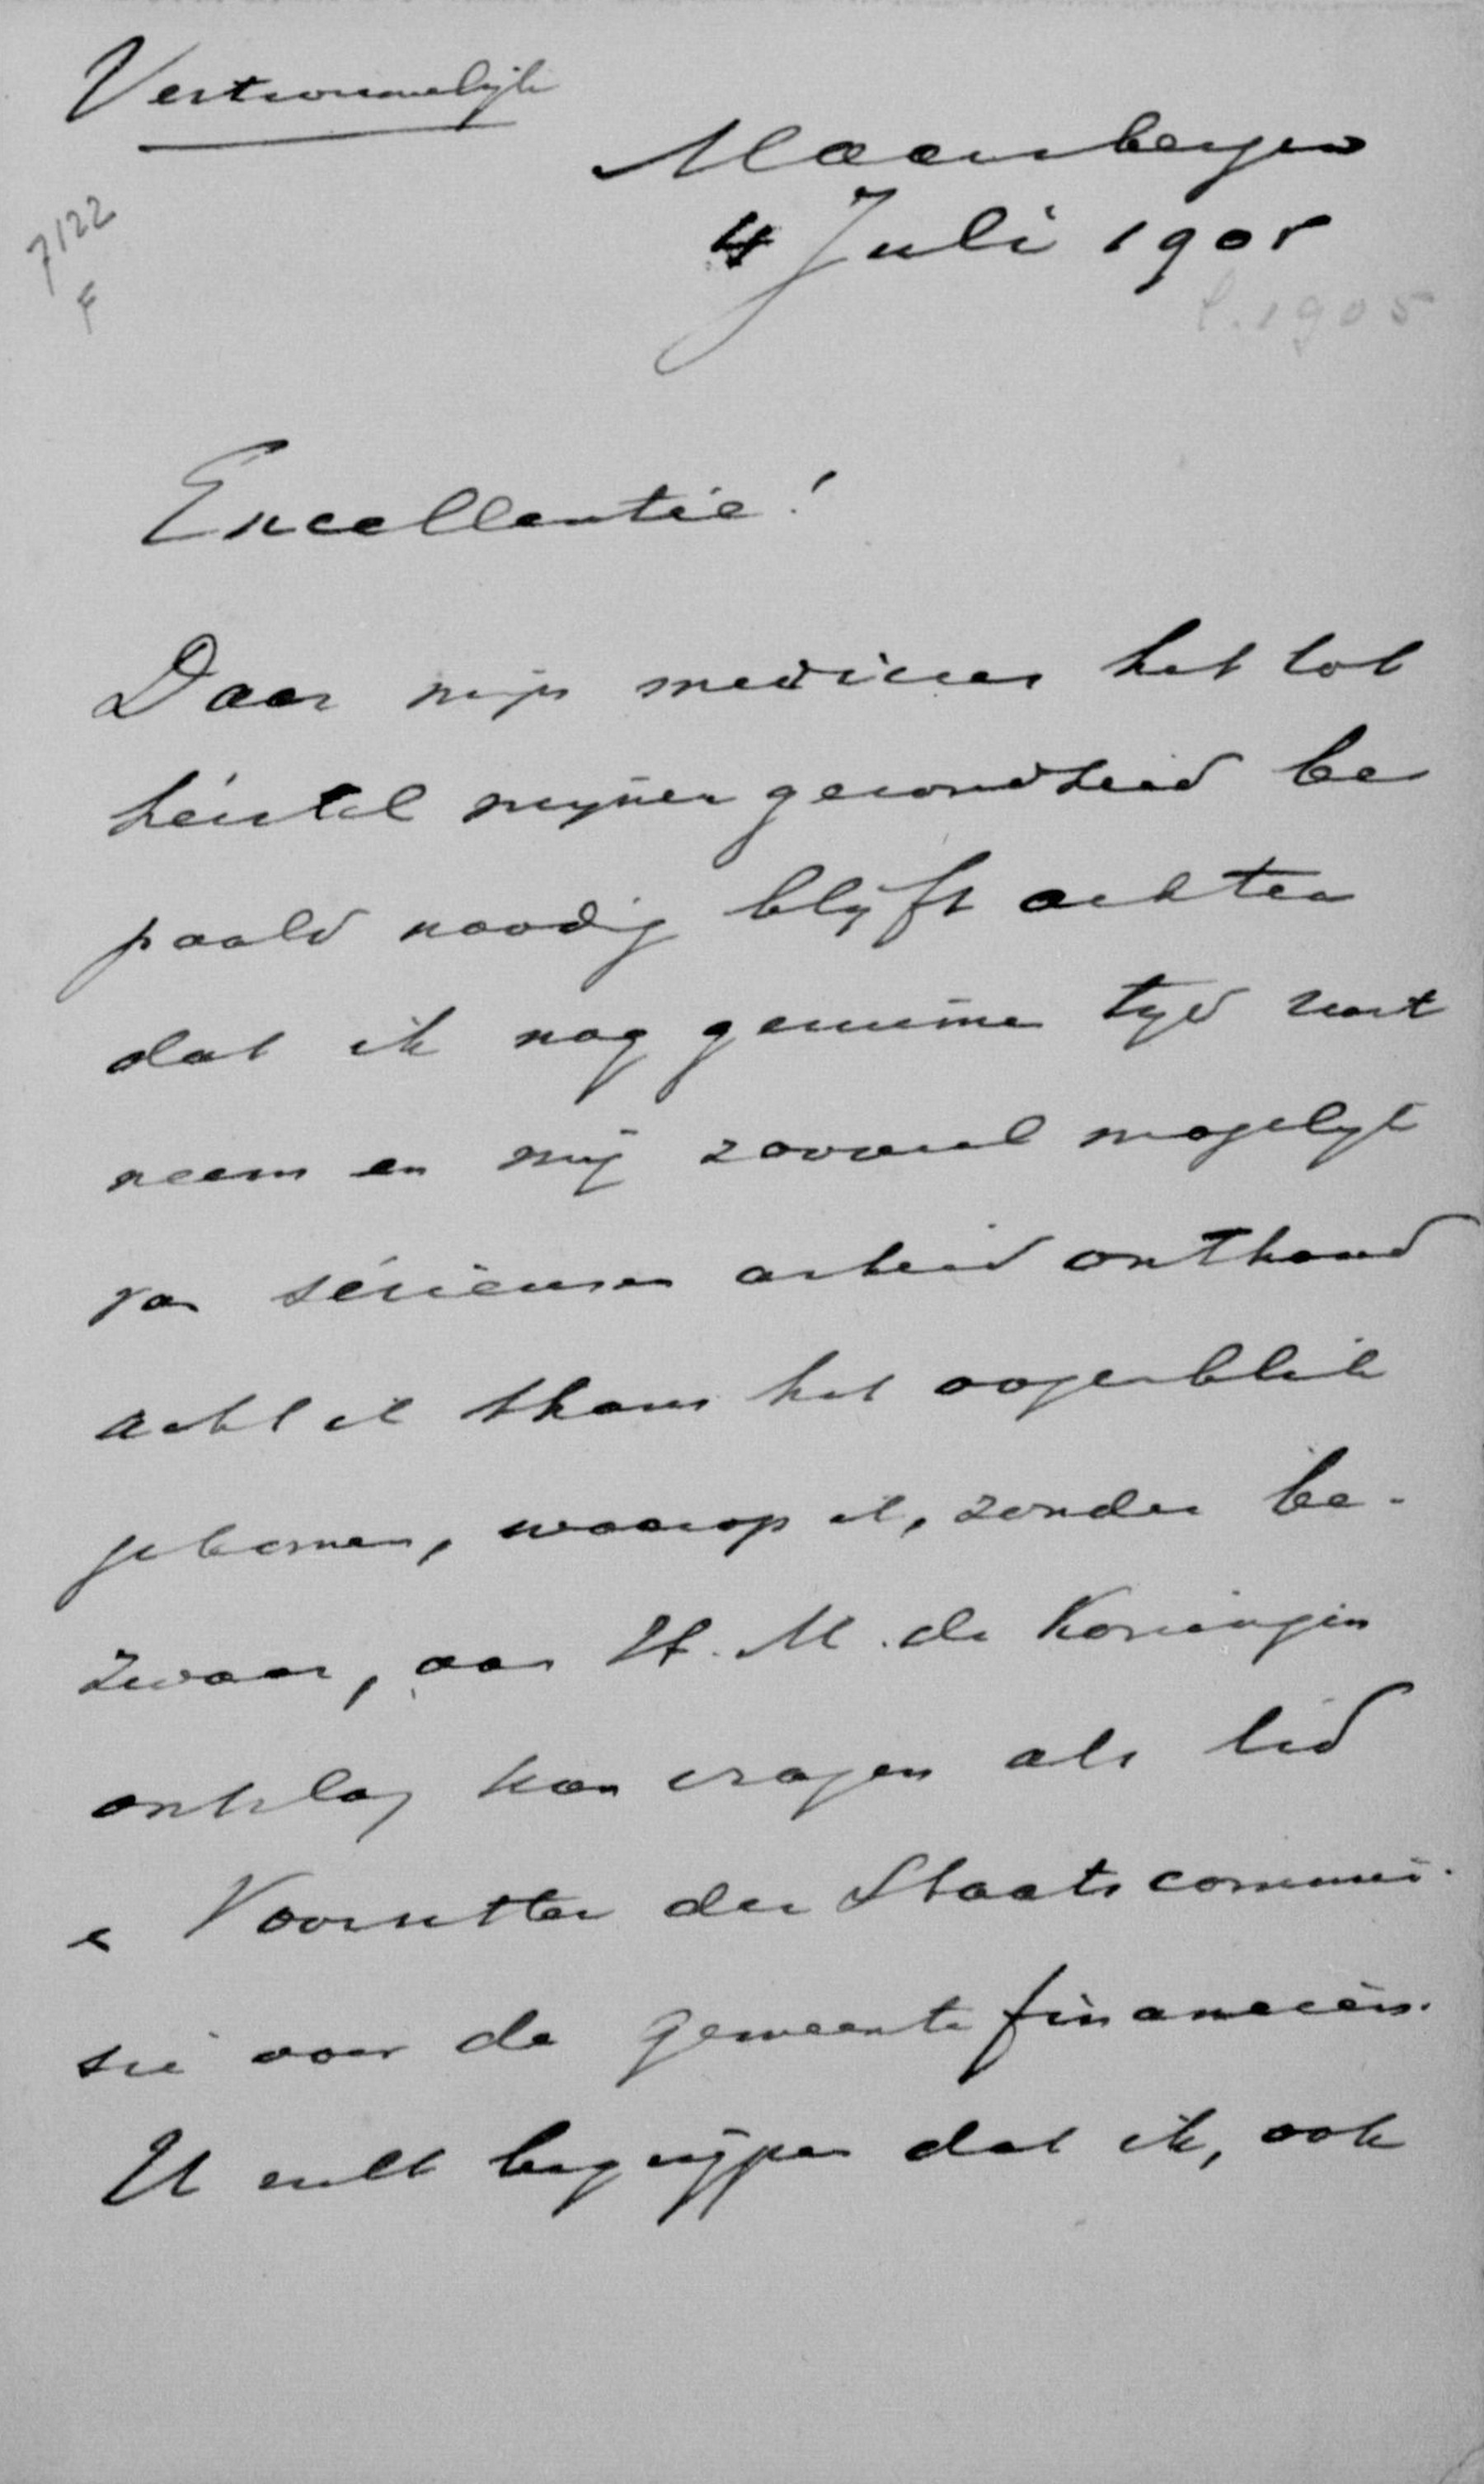 Vertrouwelijk
Maarsbergen
4 Juli 1905
7122
F
1905
Excellentie!
Daar mijn medicus het tot
herstel mijner gezondheid be
paald noodig blijft achten
dat ik nog geruime tijd rust
neem en mij zooveel mogelijk
van sérieusen arbeid onthoud
acht ik thans het oogenblik
gekomen, waarop ik, zonder be-
zwaar, aan H. M. de Koningin
ontslag kan vragen als lid
en Voorzitter der Staatscommis-
sie voor de gemeente financiën.
U zult begrijpen dat ik, ook